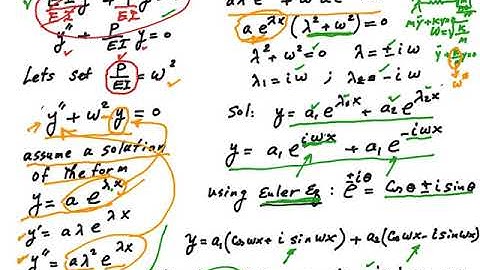 EI/EI y'' + P/EI y = 0
y'' + P/EI y = 0
Lets set P/EI = ω²
y'' + ω² y = 0
assume a solution
of the form
y = a e^{λx}
y' = a λ e^{λx}
y'' = a λ² e^{λx}
a e^{λx} (λ² + ω²) = 0
λ² + ω² = 0 λ = ± i ω
λ₁ = i ω ; λ₂ = - i ω
Sol: y = a₁ e^{λ₁x} + a₂ e^{λ₂x}
y = a₁ e^{iωx} + a₁ e^{-iωx}
using Euler Eq : e^{±iθ} = Cosθ ± i sinθ
y = a₁ (Cosωx + i sinωx) + a₂ (Cosωx - i sinωx)